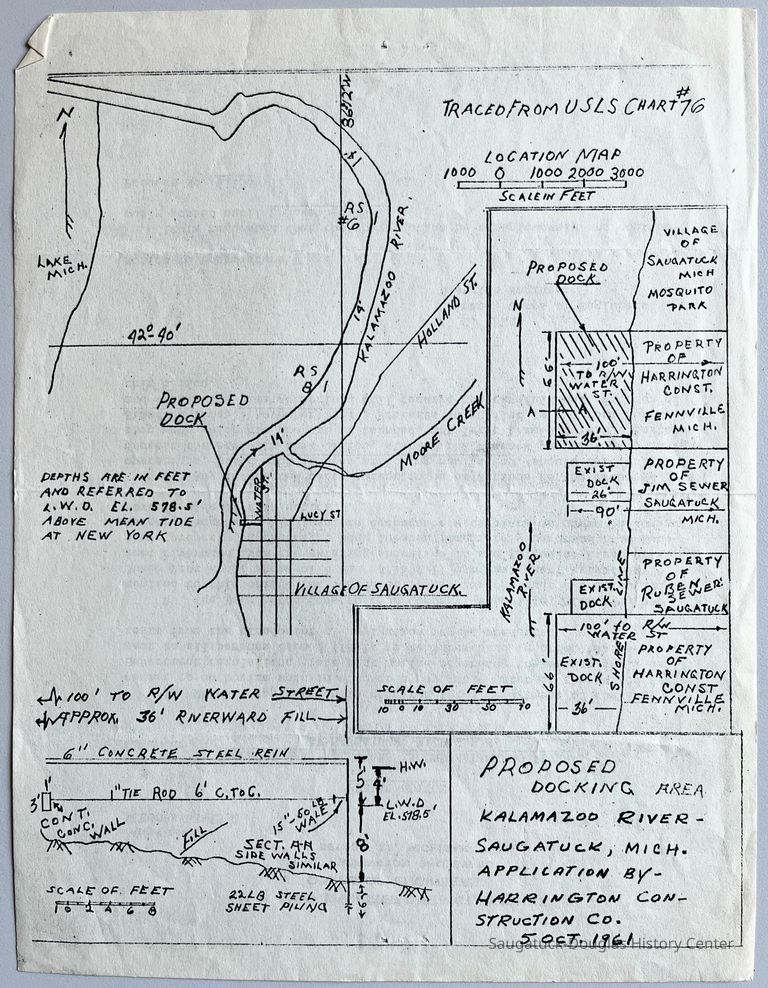 TRACED FROM U S L S CHART #76
LOCATION MAP
1000 0 1000 2000 3000
SCALE IN FEET
N
86°12'W
#1
RS
#6
LAKE
MICH.
KALAMAZOO RIVER.
14'
42°-40'
HOLLAND ST.
RS
8
PROPOSED
DOCK
14'
MOORE CREEK
WATER ST.
LUCY ST
DEPTHS ARE IN FEET
AND REFERRED TO
L.W.D. EL. 578.5'
ABOVE MEAN TIDE
AT NEW YORK
VILLAGE OF SAUGATUCK.
PROPOSED
DOCK
N
VILLAGE
OF
SAUGATUCK
MICH
MOSQUITO
PARK
66'
100'
TO R/W
WATER
ST.
A A
36'
PROPERTY
OF
HARRINGTON
CONST.
FENNVILLE
MICH.
EXIST
DOCK
26'
90'
PROPERTY
OF
JIM SEWER
SAUGATUCK
MICH.
KALAMAZOO
RIVER
EXIST.
DOCK
SHORE LINE
PROPERTY
OF
RUBEN
SEWER.
SAUGATUCK
100' TO R/W
WATER ST
66'
EXIST.
DOCK
36'
PROPERTY
OF
HARRINGTON
CONST
FENNVILLE
MICH.
SCALE OF FEET
10 0 10 30 50 70
100' TO R/W WATER STREET
APPROX. 36' RIVERWARD FILL
6" CONCRETE STEEL REIN
1'
3'
1" TIE ROD 6' C.TO C.
CONT.
CONC. WALL
FILL
15"-50 LB
WALE
SECT. A-A
SIDE WALLS
SIMILAR
5'
4'
H.W.
L.W.D
EL. 578.5'
8'
6'
22LB STEEL
SHEET PILING
SCALE OF FEET
1 0 2 4 6 8
PROPOSED
DOCKING AREA
KALAMAZOO RIVER-
SAUGATUCK, MICH.
APPLICATION BY-
HARRINGTON CON-
STRUCTION CO.
5 OCT. 1961
Saugatuck-Douglas History Center